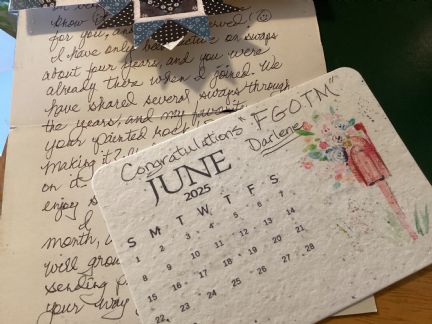 know
for you, and
I have only been active on swaps
about four years, and you were
already there when I joined. We
have shared several swaps through
the years, and my favorite
your painted rock!
making it?
on it
enjoy
I
month,
will grow
sending
your way
Congratulations "FGOTM"
Darlene
JUNE
2025
S M T W T F S
1 2 3 4 5 6 7
8 9 10 11 12 13 14
15 16 17 18 19 20 21
22 23 24 25 26 27 28